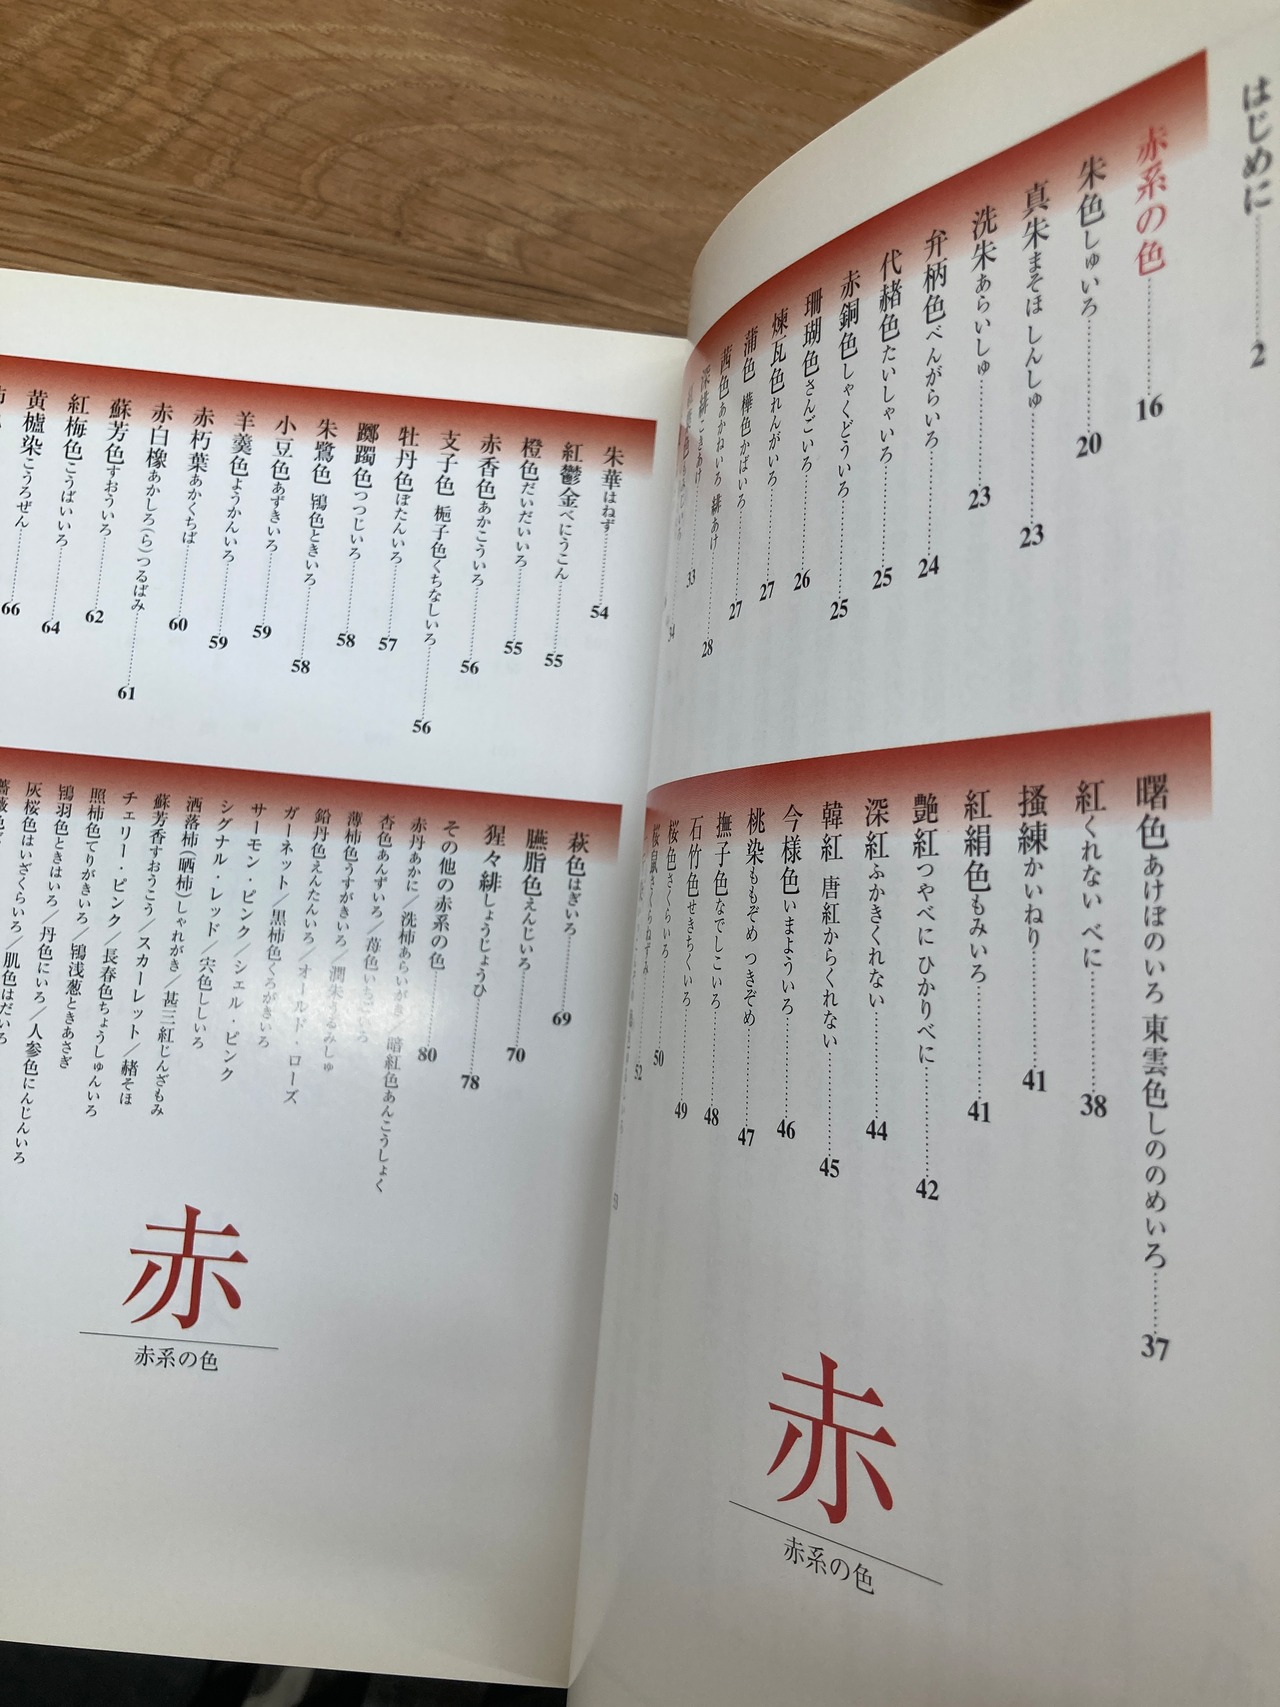 はじめに……2
赤系の色……16
朱色しゅいろ……20
真朱まそほ しんしゅ……23
洗朱あらいしゅ……23
弁柄色べんがらいろ……24
代赭色たいしゃいろ……25
赤銅色しゃくどういろ……25
珊瑚色さんごいろ……26
煉瓦色れんがいろ……27
蒲色 樺色かばいろ……27
茜色あかねいろ 緋あけ……28
深緋こきあけ……33
曙色あけぼのいろ 東雲色しののめいろ……37
紅くれない べに……38
搔練かいねり……41
紅絹色もみいろ……41
艶紅つやべに ひかりべに……42
深紅ふかきくれない……44
韓紅 唐紅からくれない……45
今様色いまよういろ……46
桃染ももぞめ つきぞめ……47
撫子色なでしこいろ……48
石竹色せきちくいろ……49
桜色さくらいろ……50
桜鼠さくらねずみ……52
赤
赤系の色
朱華はねず……54
紅鬱金べにうこん……55
橙色だいだいいろ……55
赤香色あかこういろ……56
支子色 梔子色くちなしいろ……56
牡丹色ぼたんいろ……57
躑躅色つつじいろ……58
朱鷺色 鴇色ときいろ……58
小豆色あずきいろ……59
羊羹色ようかんいろ……59
赤朽葉あかくちば……60
赤白橡あかしろ(ら)つるばみ……61
蘇芳色すおういろ……62
紅梅色こうばいいろ……64
黄櫨染こうろぜん……66
萩色はぎいろ……69
臙脂色えんじいろ……70
猩々緋しょうじょうひ……78
その他の赤系の色……80
赤丹あかに／洗柿あらいがき／暗紅色あんこうしょく
杏色あんずいろ／苺色いちごいろ
薄柿色うすがきいろ／潤朱うるみしゅ
鉛丹色えんたんいろ／オールド・ローズ
ガーネット／黒柿色くろがきいろ
サーモン・ピンク／シェル・ピンク
シグナル・レッド／宍色ししいろ
洒落柿（晒柿）しゃれがき／甚三紅じんざもみ
蘇芳香すおうこう／スカーレット／赭そほ
チェリー・ピンク／長春色ちょうしゅんいろ
照柿色てりがきいろ／鴇浅葱ときあさぎ
鴇羽色ときはいろ／丹色にいろ／人参色にんじんいろ
灰桜色はいざくらいろ／肌色はだいろ
赤
赤系の色